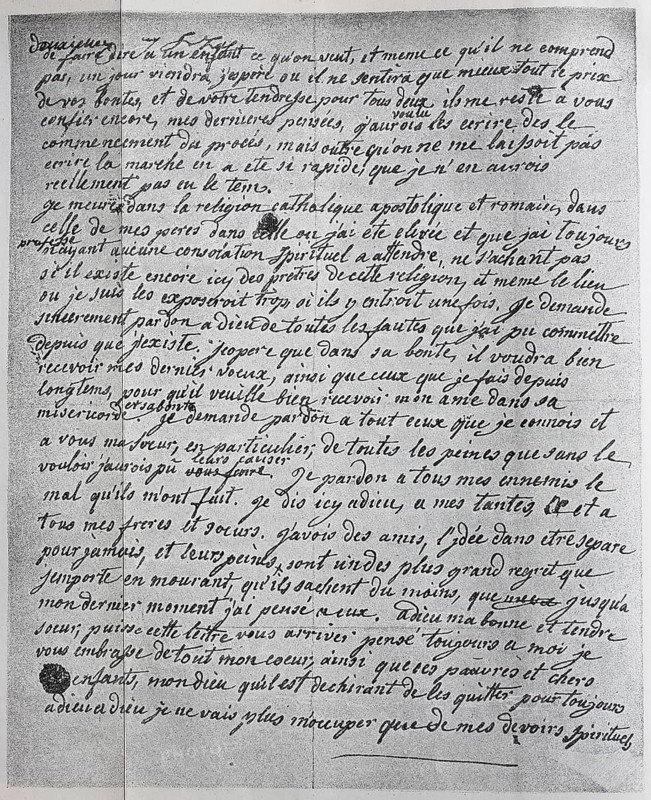 de faire dire a un enfant ce qu'on veut, et meme ce qu'il ne comprend
pas, un jour viendra, j'espere ou il ne sentira que mieux tout le prix
de vos bontes, et de votre tendresse pour tous deux il me reste a vous
confier encore, mes dernieres pensées, j'aurois voulu les ecrire des le
commencement du procés, mais outre qu'on ne me laissoit pas
ecrire la marche en a ete si rapide, que je n'en aurois
reellement pas eu le tems.
je meurs dans la religion catholique apostolique et romaine, dans
celle de mes peres dans celle ou j'ai été elevée et que j'ai toujours
professé
n'ayant aucune consolation spirituel a attendre, ne sachant pas
si il existe encore icy des prêtres de cette religion, et meme le lieu
ou je suis les exposeroit trop si ils y entroit une fois. Je demande
sincerement pardon a dieu de toutes les fautes que j'ai pu commettre
depuis que j'existe. j'espere que dans sa bonté, il voudra bien
recevoir mes dernier voeux, ainsi que ceux que je fais depuis
longtems, pour qu'il veuille bien recevoir mon ame dans sa
misericorde et sa bonté je demande pardon a tout ceux que je connois et
a vous ma soeur, en particulier, de toutes les peines que sans le
vouloir j'aurois pu leurs causer vous faire. Je pardon a tous mes ennemis le
mal qu'ils m'ont fait. Je dis icy adieu, a mes tantes, et a
tous mes freres et soeurs. j'avois des amis, l'idée d'en etre separe
pour jamais, et leurs peines, sont un des plus grand regret que
j'emporte en mourant, qu'ils sachent du moins, que jusqu'a
mon dernier moment j'ai pensé a eux. adieu ma bonne et tendre
soeur, puisse cette lettre vous arriver pensé toujours a moi je
vous embrasse de tout mon coeur, ainsi que ces pauvres et chers
enfants, mon dieu qu'il est dechirant de les quitter pour toujours
adieu adieu je ne vais plus m'occuper que de mes devoirs spirituels,